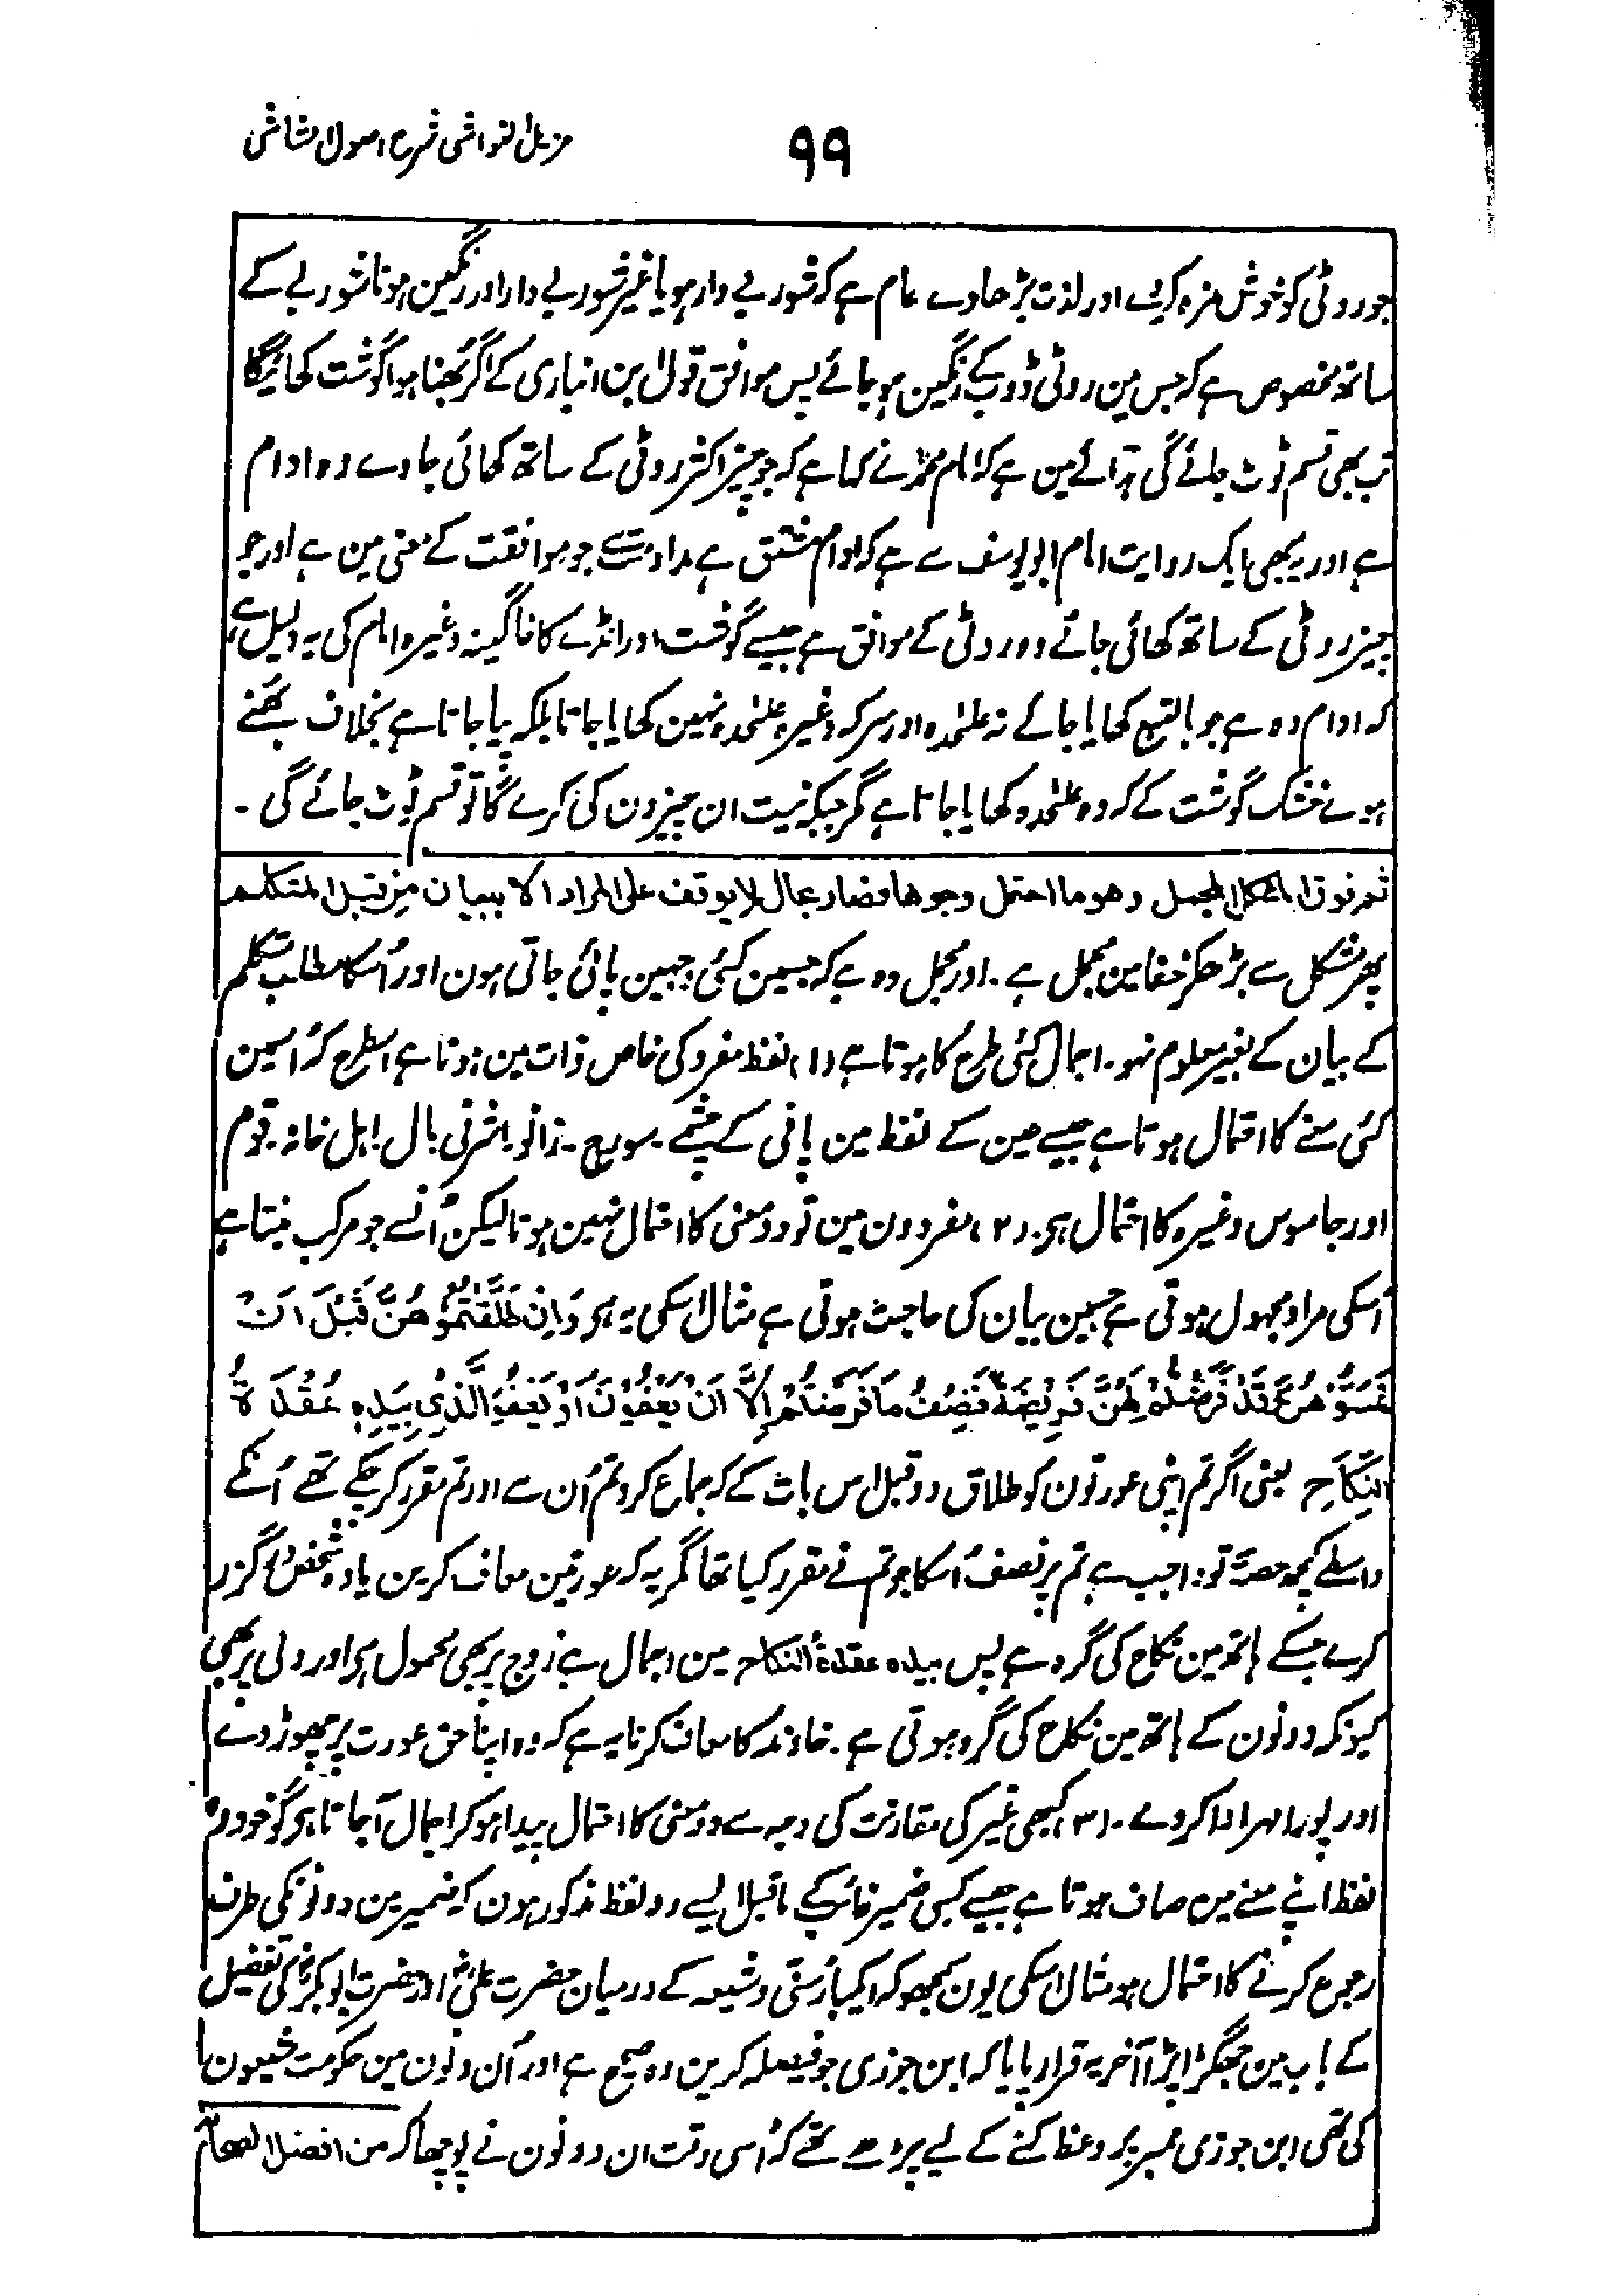 مزیل الغواشی شرح اصول الشاشی
۹۹
جو روٹی کو خوش مزہ کرے اور لذت بڑھاوے عام ہے کہ شوربے دار ہو یا غیر شوربے دار اور رنگین ہونا شوربے کے
ساتھ مخصوص ہے کہ جس مین روٹی ڈوب کے رنگین ہو جائے پس موافق قول ابن انباری کے اگر بُھنا ہوا گوشت کھائیگا
تب بھی قسم ٹوٹ جائے گی بدائع مین ہے کہ امام محمدؒ نے کہا ہے کہ جو چیز اکثر روٹی کے ساتھ کھائی جاوے وہ ادام
ہے اور یہی ایک روایت امام ابو یوسف سے ہے کہ ادام مشتق ہے مداومت سے جو موافقت کے معنی مین ہے اور جو
چیز روٹی کے ساتھ کھائی جائے وہ روٹی کے موافق ہے جیسے گوشت اور انڈے کا خاگینہ وغیرہ امام کی یہ دلیل ہے
کہ ادام وہ ہے جو بالتبع کھایا جائے نہ علٰحدہ اور سرکہ وغیرہ علٰحدہ نہین کھایا جاتا بلکہ پیا جاتا ہے بخلاف بُھنے
ہوے خشک گوشت کے کہ وہ علٰحدہ کھایا جاتا ہے مگر جبکہ نیت ان چیزون کی کرے گا تو قسم ٹوٹ جائے گی ۔
ثم فوق المشکل المجمل وهو ما احتمل وجوها فصار بحال لا یوقف علی المراد الا ببیان من قبل المتکلم
پھر مشکل سے بڑھکر خفا مین مجمل ہے ۔ اور مجمل وہ ہے کہ جسمین کئی وجہین پائی جاتی ہون اور اُسکا مطلب متکلم
کے بیان کے بغیر معلوم نہو ۔ اجمال کئی طرح کا ہوتا ہے (۱) لفظ مفرد کی خاص ذات مین ہوتا ہے اسطرح کہ اُسمین
کئی معنے کا احتمال ہوتا ہے جیسے عین کے لفظ مین پانی کے چشمے ۔ سورج ۔ زانو ۔ اشرفی ۔ مال ۔ اہل خانہ ۔ قوم
اور جاسوس وغیرہ کا احتمال ہی ۔ (۲) مفردون مین تو دو معنی کا احتمال نہین ہوتا لیکن اُنسے جو مرکب بنتا ہے
اُسکی مراد مجہول ہوتی ہے جسمین بیان کی حاجت ہوتی ہے مثال اسکی یہ ہی وَاِنْ طَلَّقْتُمُوْهُنَّ قَبْلَ اَنْ
تَمَسُّوْهُنَّ وَقَدْ فَرَضْتُمْ لَهُنَّ فَرِیْضَةً فَنِصْفُ مَا فَرَضْتُمْ اِلَّا اَنْ یَعْفُوْنَ اَوْ یَعْفُوَ الَّذِیْ بِیَدِهٖ عُقْدَةُ
النِّکَاحِ یعنی اگر تم اپنی عورتون کو طلاق دو قبل اس بات کے کہ جماع کرو تم اُن سے اور تم مقرر کر چکے تھے اُنکے
واسطے کچھ حصہ تو واجب ہے تم پر نصف اُسکا جو تم نے مقرر کیا تھا مگر یہ کہ عورتین معاف کرین یا وہ شخص درگزر
کرے جسکے ہاتھ مین نکاح کی گرہ ہے پس بیدہ عقدۃ النکاح مین اجمال ہے زوج پر بھی محمول ہی اور ولی پر بھی
کیونکہ دونون کے ہاتھ مین نکاح کی گرہ ہوتی ہے ۔ خاوند کا معاف کرنا یہ ہے کہ وہ اپنا حق عورت پر چھوڑ دے
اور پورا مہر ادا کر دے ۔ (۳) کبھی غیر کی مقارنت کی وجہ سے دو معنی کا احتمال پیدا ہو کر اجمال آ جاتا ہی گو خود وہ
لفظ اپنے معنے مین صاف ہوتا ہے جیسے کسی ضمیر غائب کے ماقبل ایسے دو لفظ مذکور ہون کہ ضمیر مین دونونکی طرف
رجوع کرنے کا احتمال ہو مثال اسکی یون سمجھو کہ ایکبار سُنّی و شیعہ کے درمیان حضرت علیؓ اور حضرت ابو بکرؓ کی تفضیل
کے باب مین جھگڑا پڑا آخر یہ قرار پایا کہ ابن جوزی جو فیصلہ کرین وہ صحیح ہے اور اُن دنون مین حکومت شیعون
کی تھی ابن جوزی ممبر پر وعظ کہنے کے لیے چڑھے تھے کہ اُسی وقت ان دونون نے پوچھا کہ من افضل الصحابة